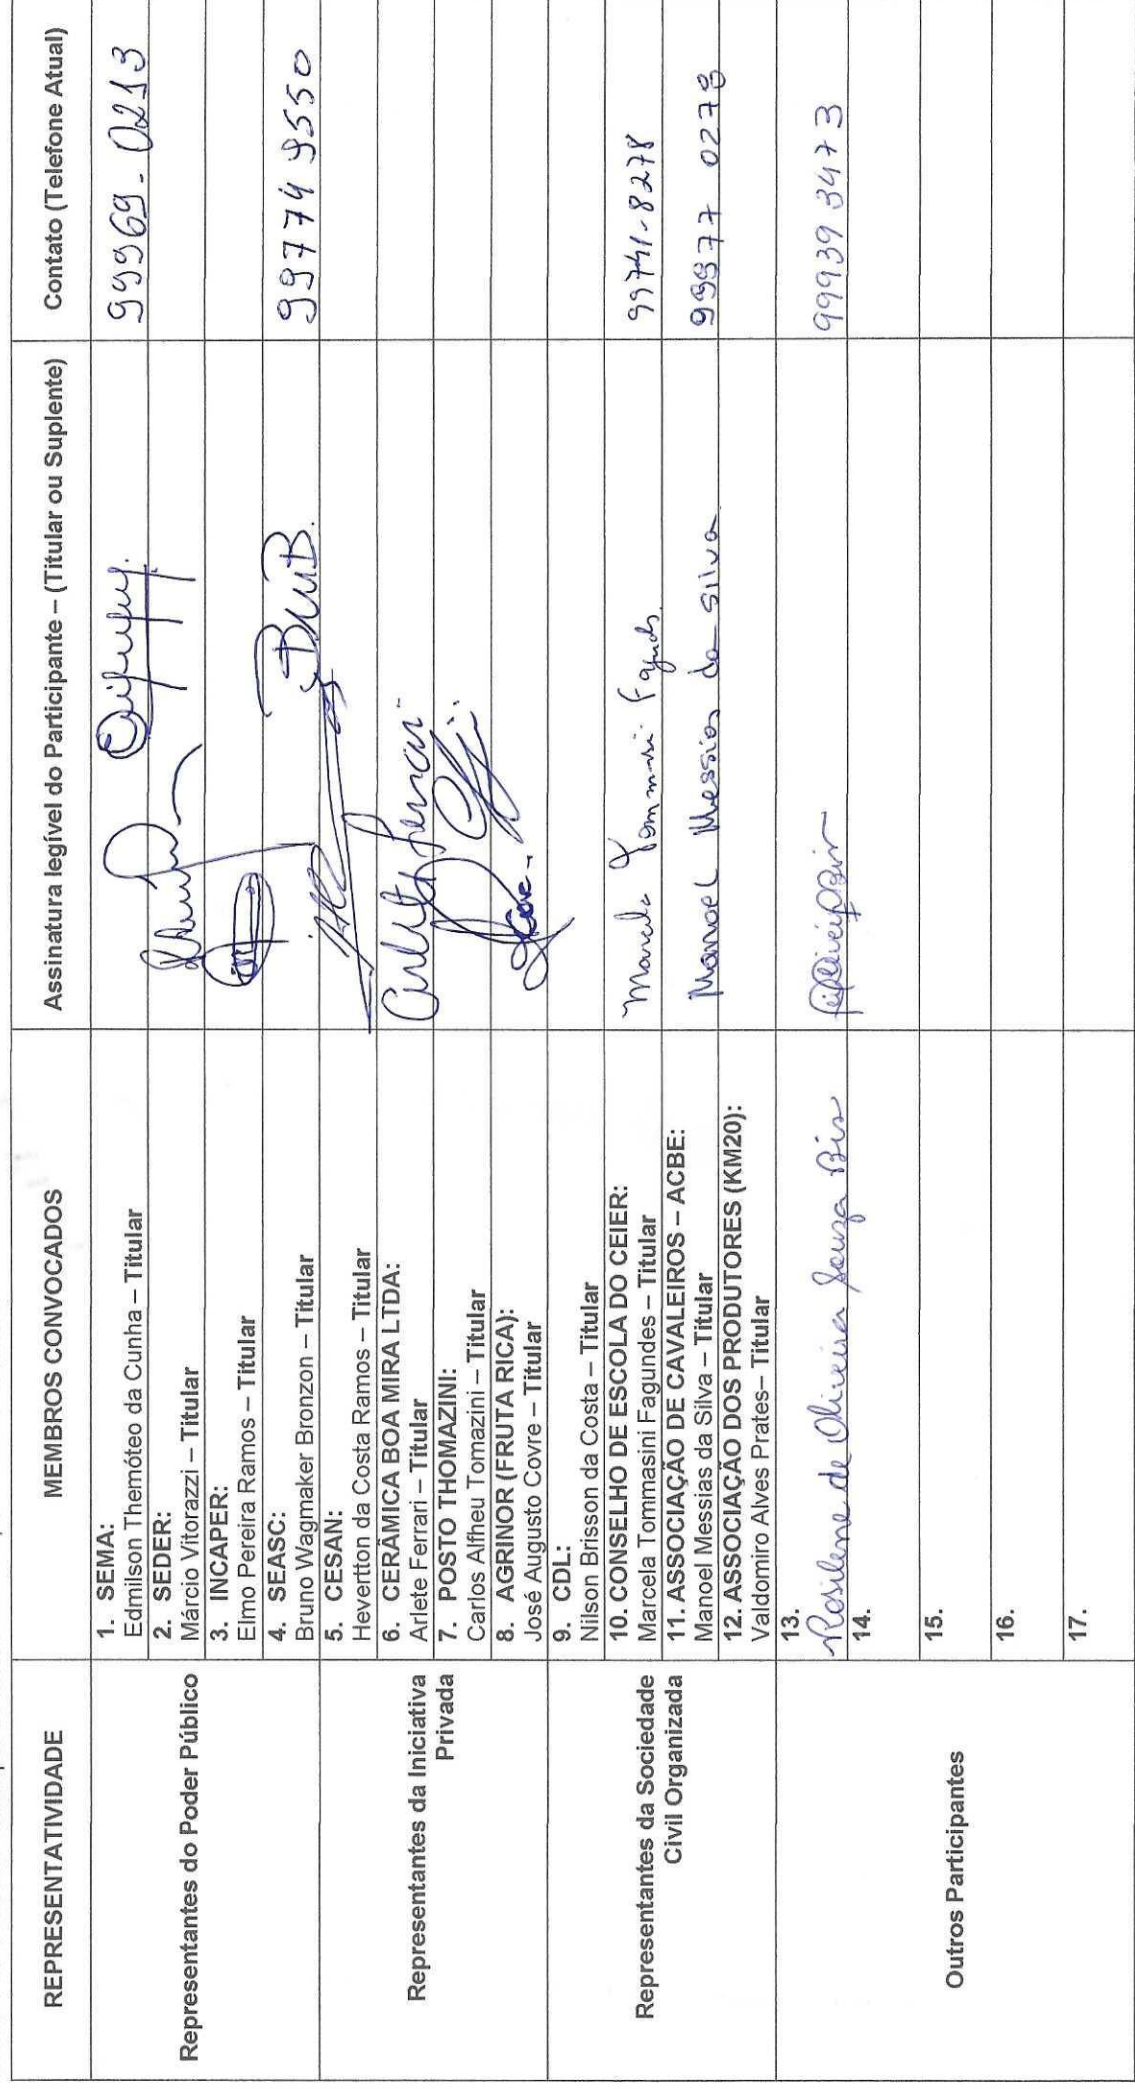 REPRESENTATIVIDADE
MEMBROS CONVOCADOS
Assinatura legível do Participante – (Titular ou Suplente)
Contato (Telefone Atual)
Representantes do Poder Público
1. SEMA:
Edmilson Themóteo da Cunha – Titular
99969-0213
2. SEDER:
Márcio Vitorazzi – Titular
3. INCAPER:
Elmo Pereira Ramos – Titular
4. SEASC:
Bruno Wagmaker Bronzon – Titular
99774 9550
Representantes da Iniciativa
Privada
5. CESAN:
Hevertton da Costa Ramos – Titular
6. CERÂMICA BOA MIRA LTDA:
Arlete Ferrari – Titular
Arlete Ferrari
7. POSTO THOMAZINI:
Carlos Alfheu Tomazini – Titular
8. AGRINOR (FRUTA RICA):
José Augusto Covre – Titular
Representantes da Sociedade
Civil Organizada
9. CDL:
Nilson Brisson da Costa – Titular
10. CONSELHO DE ESCOLA DO CEIER:
Marcela Tommasini Fagundes – Titular
Marcela Tommasini Fagundes
99741-8278
11. ASSOCIAÇÃO DE CAVALEIROS – ACBE:
Manoel Messias da Silva – Titular
Manoel Messias da silva
99977 0278
12. ASSOCIAÇÃO DOS PRODUTORES (KM20):
Valdomiro Alves Prates– Titular
Outros Participantes
13.
Rosilene de Oliveira Souza Bis
99939 3473
14.
15.
16.
17.